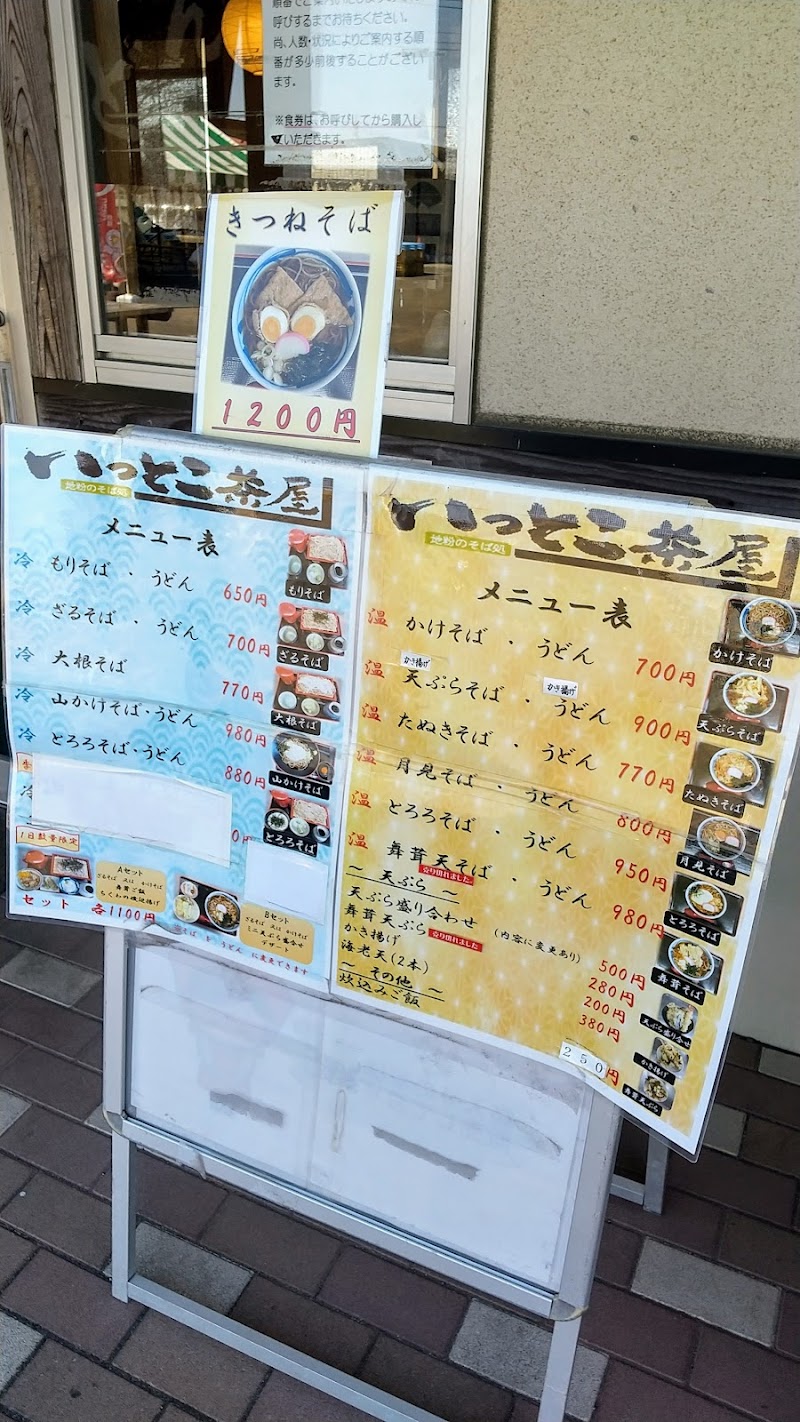 順番でご案内いたしますので、お
呼びするまでお待ちください。
尚、人数・状況によりご案内する順
番が多少前後することがござい
ます。
※食券は、お呼びしてから購入し
ていただきます。
きつねそば
1200円
いっとこ茶屋
地粉のそば処
メニュー表
冷 もりそば ・ うどん 650円
冷 ざるそば ・ うどん 700円
冷 大根そば 770円
冷 山かけそば・うどん 980円
冷 とろろそば・うどん 880円
冷
もりそば
ざるそば
大根そば
山かけそば
とろろそば
1日数量限定
Aセット
ざるそば 又は かけそば
舞茸ご飯
ちくわの磯辺揚げ
Bセット
ざるそば 又は かけそば
ミニ天ぷら盛合せ
デザート
セット 各1100円
そば を うどん に変更できます
いっとこ茶屋
地粉のそば処
メニュー表
温 かけそば ・ うどん 700円
かき揚げ かき揚げ
温 天ぷらそば ・ うどん 900円
温 たぬきそば ・ うどん 770円
温 月見そば ・ うどん 800円
温 とろろそば ・ うどん 950円
温 舞茸天そば ・ うどん 980円
売り切れました。
～ 天ぷら ～
天ぷら盛り合わせ (内容に変更あり) 500円
舞茸天ぷら 売り切れました 280円
かき揚げ 200円
海老天(2本) 380円
～ その他 ～
炊込みご飯 250円
かけそば
天ぷらそば
たぬきそば
月見そば
とろろそば
舞茸そば
天ぷら盛り合せ
かき揚げ
舞茸天ぷら